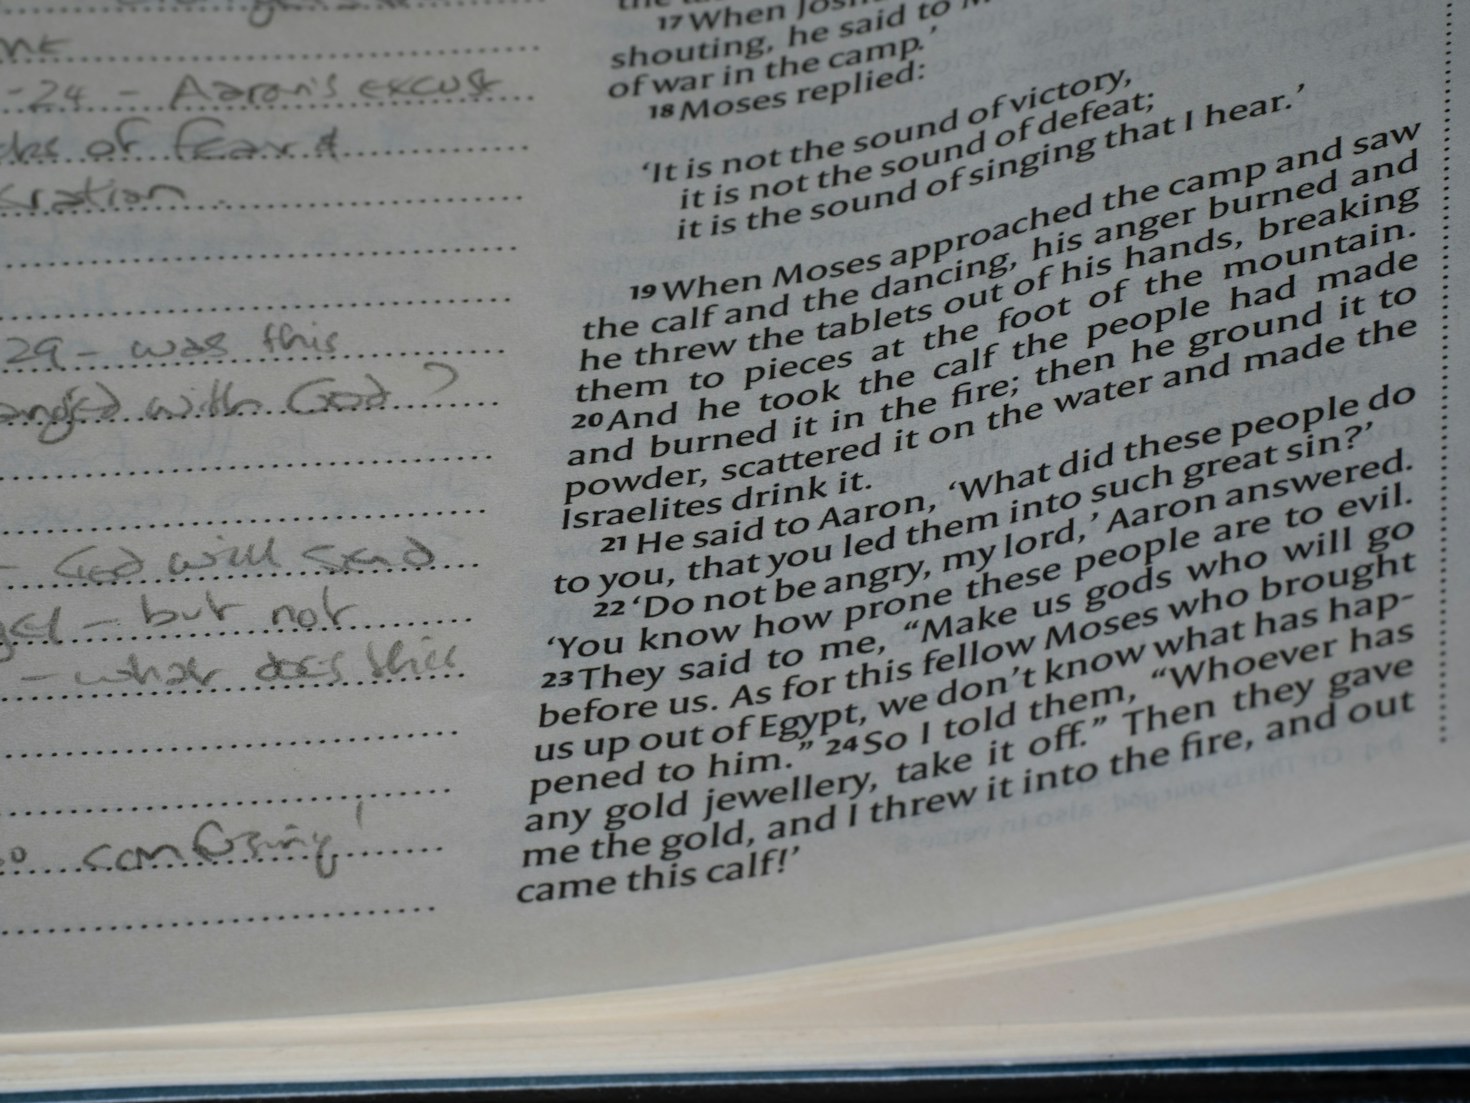 -24 - Aaron's excuse
of fear &
29 - was this
with God?
- God will send
- but not
- what does this
so confusing!
17 When
shouting, he said to
of war in the camp.’
18 Moses replied:
‘It is not the sound of victory,
it is not the sound of defeat;
it is the sound of singing that I hear.’
19 When Moses approached the camp and saw
the calf and the dancing, his anger burned and
he threw the tablets out of his hands, breaking
them to pieces at the foot of the mountain.
20 And he took the calf the people had made
and burned it in the fire; then he ground it to
powder, scattered it on the water and made the
Israelites drink it.
21 He said to Aaron, ‘What did these people do
to you, that you led them into such great sin?’
22 ‘Do not be angry, my lord,’ Aaron answered.
‘You know how prone these people are to evil.
23 They said to me, “Make us gods who will go
before us. As for this fellow Moses who brought
us up out of Egypt, we don’t know what has hap-
pened to him.” 24 So I told them, “Whoever has
any gold jewellery, take it off.” Then they gave
me the gold, and I threw it into the fire, and out
came this calf!’